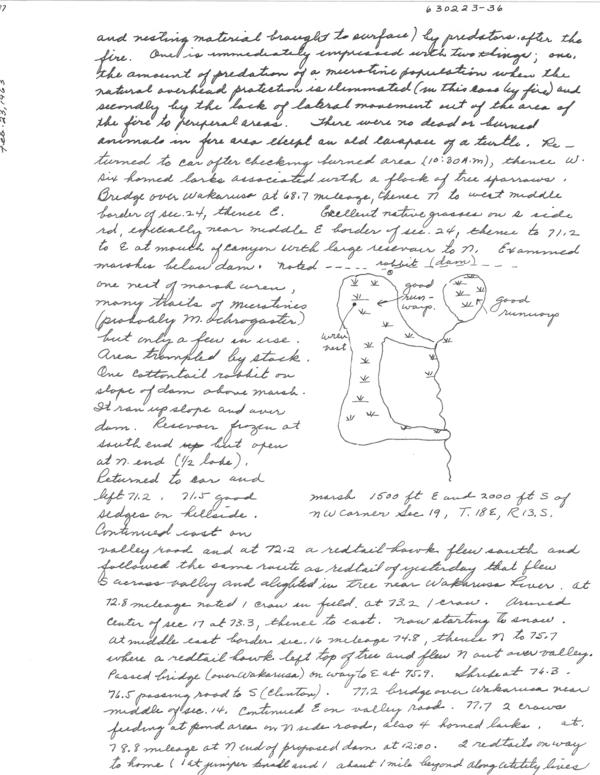 630223-36
Feb. 23, 1963
and nesting material brought to surface) by predators after the
fire. One is immediately impressed with two things; one,
the amount of predation of a microtine population when the
natural overhead protection is eliminated (in this case by fire) and
secondly by the lack of lateral movement out of the area of
the fire to periperal areas. There were no dead or burned
animals in fire area except an old carapace of a turtle. Re-
turned to car after checking burned area (10:30 A.M), thence W.
Six horned larks associated with a flock of tree sparrows.
Bridge over Wakarusa at 68.7 mileage, thence N to west middle
border of sec. 24, thence E. Excellent native grasses on S side
rd, especially near middle E border of sec. 24, thence to 71.2
to E at mouth of canyon with large resevoir to N. Examined
marshes below dam. Noted ----- rabbit (dam) ---
one nest of marsh wren,
many trails of microtines
(probably M. ochrogaster)
but only a few in use.
Area trampled by stock.
One cottontail rabbit on
slope of dam above marsh.
It ran up slope and over
dam. Resevoir frozen at
south end up but open
at N. end (1/2 lake).
Returned to car and
left 71.2. 71.5 good
sedges on hillside.
Continued east on
good
run-
ways.
good
runways
wren
nest
marsh 1500 ft E and 2000 ft S of
NW Corner Sec 19, T. 18E, R13.S.
valley road and at 72.2 a redtail hawk flew south and
followed the same route as redtail of yesterday that flew
S across valley and alighted in tree near Wakarusa River. at
72.8 mileage noted 1 crow in field. at 73.2 1 crow. Arrived
center of sec 17 at 73.3, thence to east. now starting to snow.
At middle east border sec. 16 mileage 74.8, thence N to 75.7
where a redtail hawk left top of tree and flew N out over valley.
Passed bridge (over Wakarusa) on way to E at 75.9. Shrike at 76.3.
76.5 passing road to S (Clinton). 77.2 bridge over Wakarusa near
middle of sec. 14. Continued E on valley road. 77.7 2 crows
feeding at pond area on N side road, also 4 horned larks. at
78.8 mileage at N end of proposed dam at 12:00. 2 redtails on way
to home (1 at juniper knoll and 1 about 1 mile beyond along utility lines